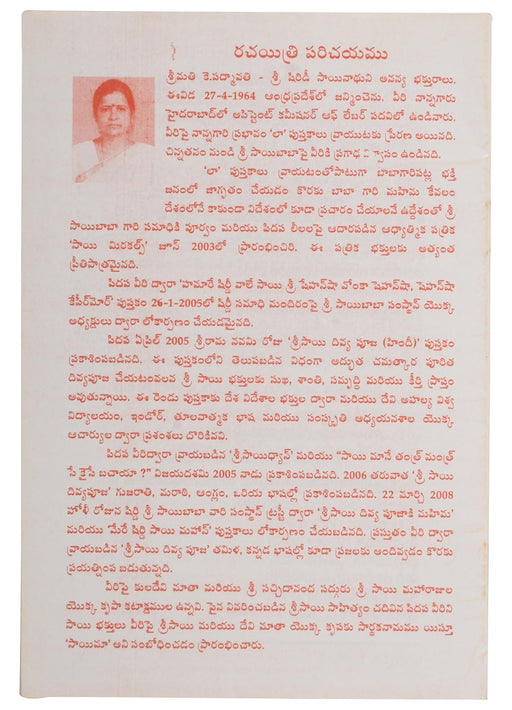 రచయిత్రి పరిచయము
శ్రీమతి కె.పద్మావతి - శ్రీ షిరిడీ సాయినాథుని అనన్య భక్తురాలు.
ఈవిడ 27-4-1964 ఆంధ్రప్రదేశ్‌లో జన్మించెను. వీరి నాన్నగారు
హైదరాబాద్‌లో అసిస్టెంట్ కమీషనర్ ఆఫ్ లేబర్ పదవిలో ఉండినారు.
వీరిపై నాన్నగారి ప్రభావం 'లా' పుస్తకాలు వ్రాయుటకు ప్రేరణ అయినది.
చిన్నతనం మండి శ్రీ సాయిబాబాపై వీరికి ప్రగాఢ వి్వాసం ఉండినది.
'లా' పుస్తకాలు వ్రాయటంతోపాటుగా బాబాగారిపట్ల భక్తి
జనంలో జాగృతం చేయడం కొరకు బాబా గారి మహిమ కేవలం
దేశంలోనే కాకుండా విదేశంలో కూడా ప్రచారం చేయాలనే ఉద్దేశంతో శ్రీ
సాయిబాబా గారి సమాధికి పూర్వం మరియు పిదప లీలలపై ఆదారపడిన ఆధ్యాత్మిక పత్రిక
'సాయి మిరకల్స్' జూన్ 2003లో ప్రారంభించిరి. ఈ పత్రిక భక్తులకు అత్యంత
ప్రీతిపాత్రమైనది.
పిదప వీరి ద్వారా 'హమారే షిర్డీ వాలే సాయి శ్రీ షేహన్‌షా వోంకా షెహన్‌షా, షెహన్‌షా
కేపీర్‌మోర్' పుస్తకం 26-1-2005లో షిర్డీ సమాధి మందిరంపై శ్రీ సాయిబాబా సంస్థాన్ యొక్క
అధ్యక్షులు ద్వారా లోకార్పణం చేయడమైనది.
పిదప ఏప్రిల్ 2005 శ్రీరామ నవమి రోజు 'శ్రీసాయి దివ్య పూజ (హిందీ)' పుస్తకం
ప్రకాశింపబడినది. ఈ పుస్తకంలోని తెలుపబడిన విధంగా అద్భుత చమత్కార పూరిత
దివ్యపూజ చేయటంవలవ శ్రీ సాయి భక్తులకు సుఖ, శాంతి, సమృద్ధి మరియు కీర్తి ప్రాప్తం
అవుతున్నాయి. ఈ రెండు పుస్తకాకు దేశ విదేశాల భక్తుల ద్వారా మరియు దేవి అహల్య విశ్వ
విద్యాలయం, ఇండోర్, తూలనాత్మక భాష మరియు సంస్కృతి అధ్యయనశాల యొక్క
ఆచార్యుల ద్వారా ప్రశంశలు దొరికినవి.
పిదప వీరిద్వారా వ్రాయబడిన 'శ్రీసాయిధ్యాన్' మరియు "సాయి మానే తంత్ర్ మంత్ర్
సే కైసే బచాయా ?" విజయదశమి 2005 నాడు ప్రకాశింపబడినది. 2006 తరువాత 'శ్రీ సాయి
దివ్యపూజ' గుజరాతి, మరాఠి, ఆంగ్లం, ఒరియ భాషల్లో ప్రకాశింపబడినది. 22 మార్చి 2008
హోళీ రోజున షిర్డి శ్రీ సాయిబాబా వారి సంస్థాన్ ట్రస్టీ ద్వారా 'శ్రీసాయి దివ్య పూజాకి మహిమ'
మరియు 'మేరే షిర్డి సాయి మహాన్' పుస్తకాలు లోకార్పణం చేయబడినది. ప్రస్తుతం వీరి ద్వారా
వ్రాయబడిన 'శ్రీసాయి దివ్య పూజ' తమిళ, కన్నడ భాషల్లో కూడా ప్రజలకు అందివ్వడం కొరకు
ప్రయత్నింప బడుతున్నది.
వీరిపై కులదేవీ మాతా మరియు శ్రీ సచ్చిదానంద సద్గురు శ్రీ సాయి మహారాజుల
యొక్క కృపా కటాక్షములు ఉన్నవి. పైన వివరించబడిన శ్రీసాయి సాహిత్యం చదివిన పిదప వీరిని
సాయి భక్తులు వీరిపై శ్రీసాయి మరియు దేవి మాతా యొక్క కృపకు సార్థకనామము యిస్తూ
'సాయిమా' అని సంబోధించడం ప్రారంభించారు.